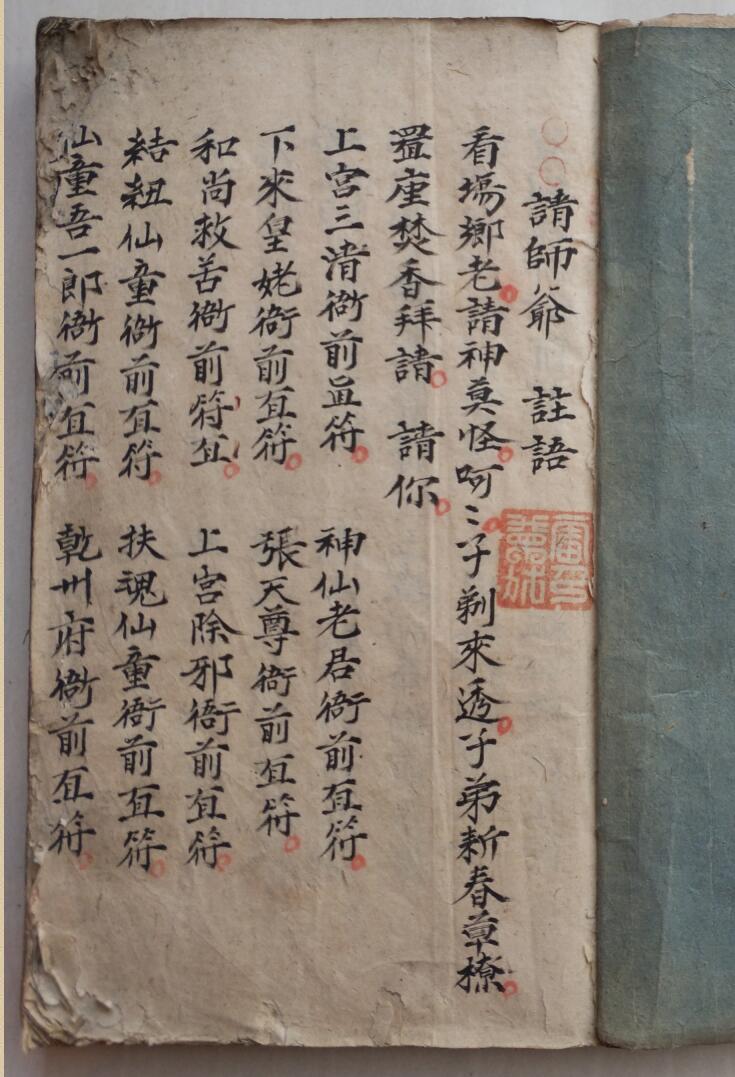 請師爺 註語
看塲鄉老請神莫怪呵〻子剃來透子弟新春章橑
置座焚香拜請 請你
上宫三清衙前亘符 神仙老君衙前亘符
下來皇姥衙前亘符 張天尊衙前亘符
和尚救苦衙前符亘 上宫除邪衙前亘符
結紐仙童衙前亘符 扶魂仙童衙前亘符
仙童吾一郎衙前亘符 乾州府衙前亘符